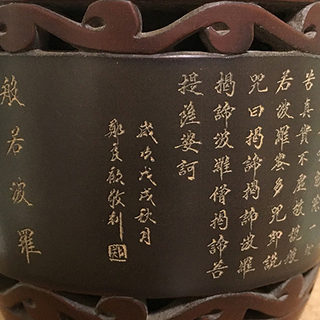 苦真實不虛故說般
若波羅蜜多咒即說
咒曰揭諦揭諦波羅
揭諦波羅僧揭諦菩
提薩婆訶
歲次戊戌秋月
敬刻
般若波羅